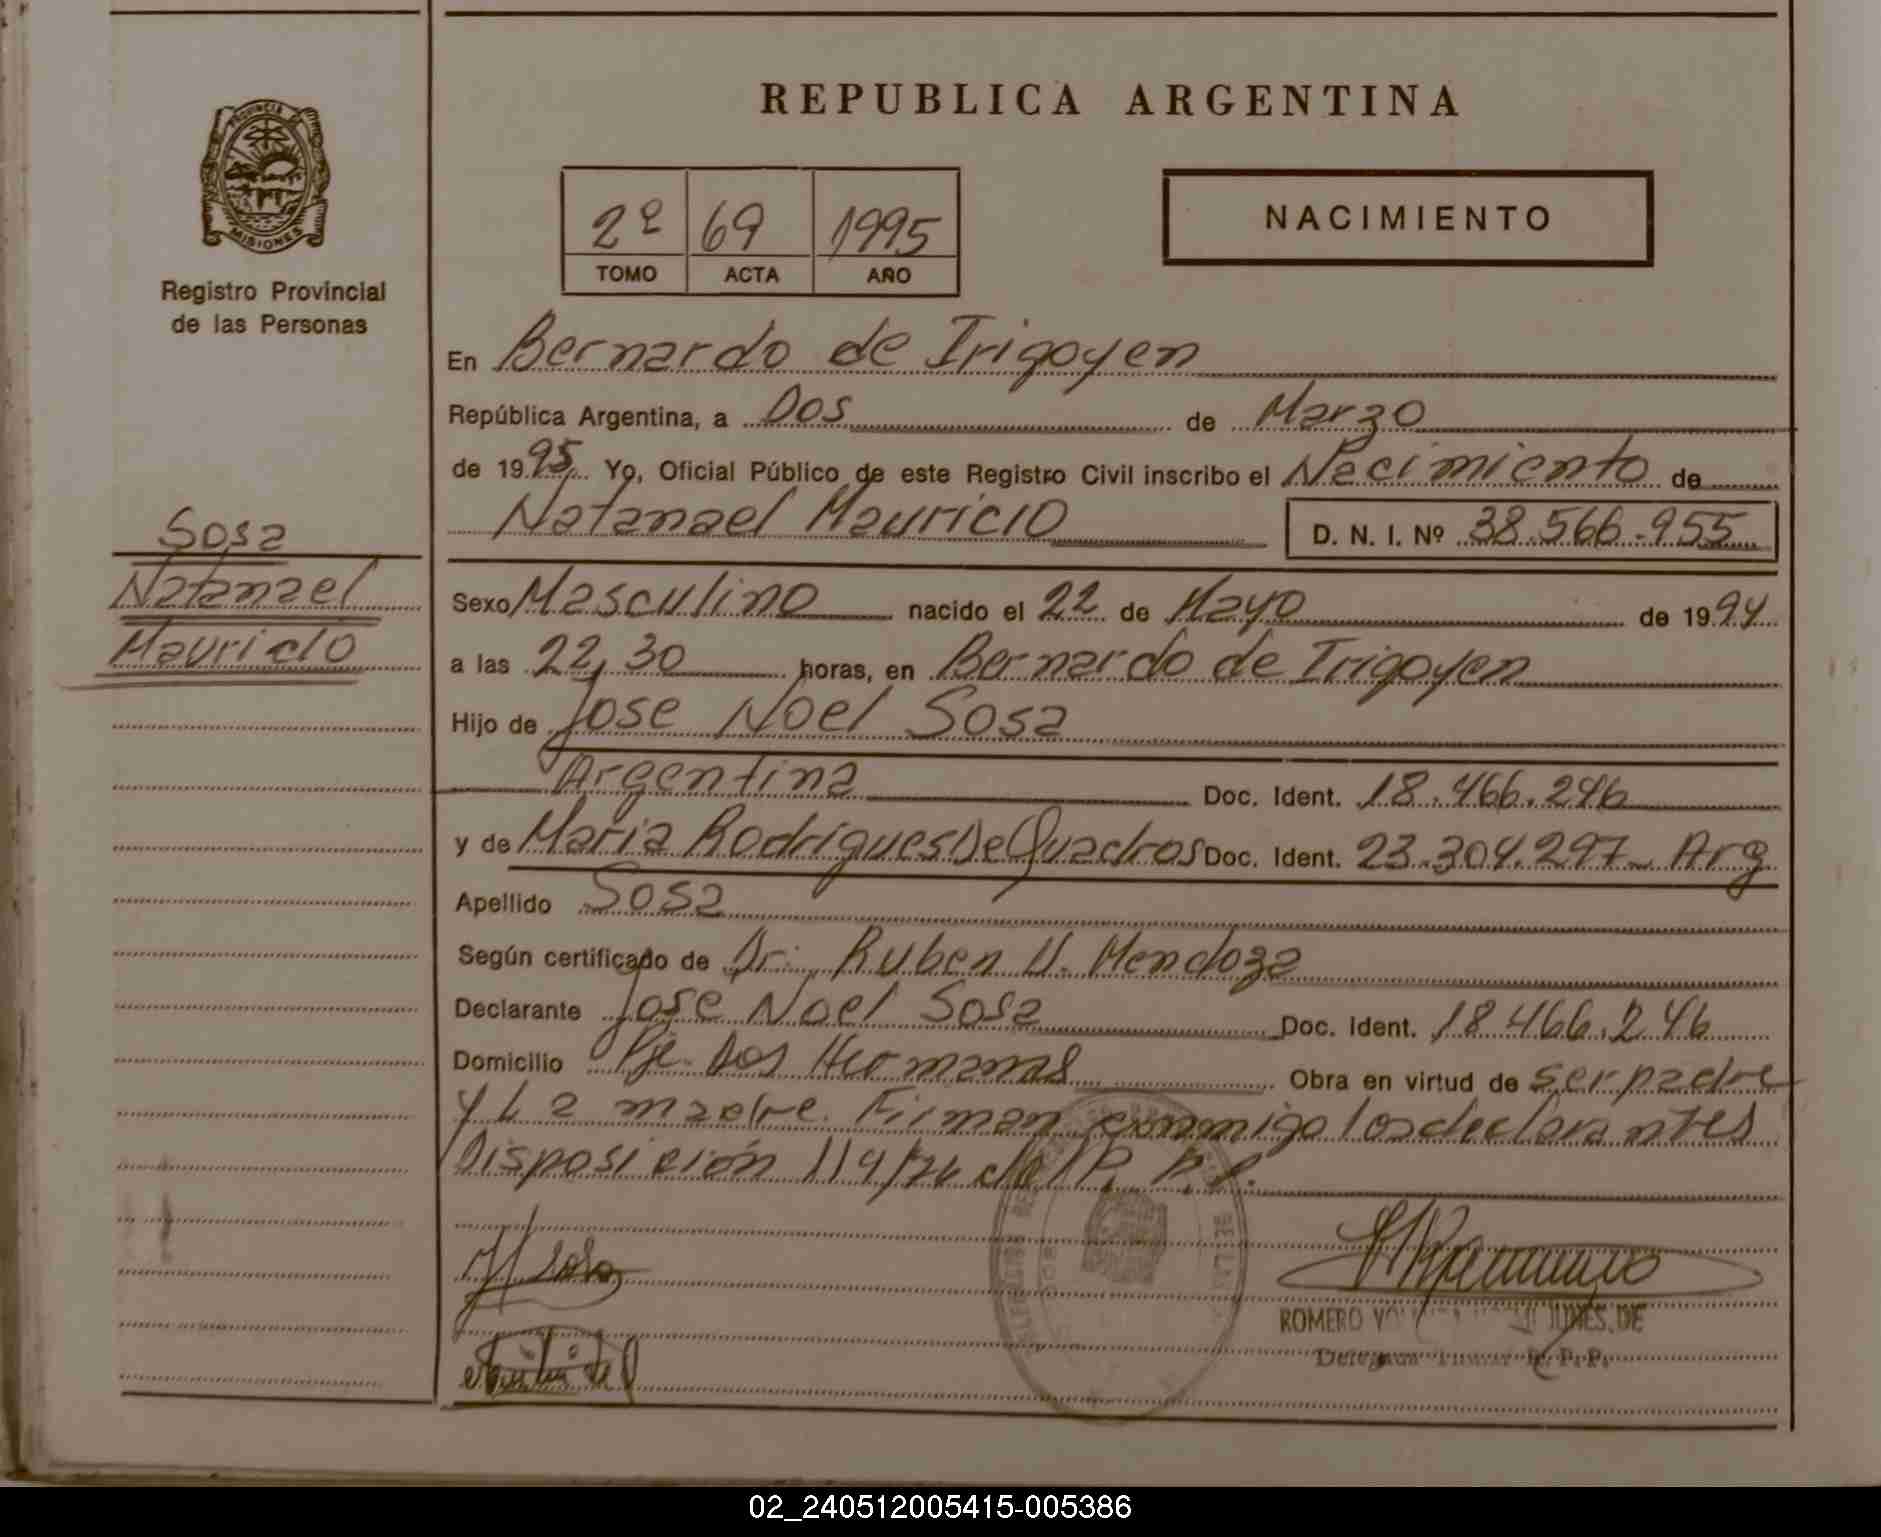 REPUBLICA ARGENTINA
PROVINCIA
MISIONES
Registro Provincial
de las Personas
2º 69 1995
TOMO ACTA AÑO
NACIMIENTO
En Bernardo de Irigoyen
República Argentina, a Dos de Marzo
de 1995 Yo, Oficial Público de este Registro Civil inscribo el Nacimiento de
Natanael Mauricio D. N. I. Nº 38.566.955
Sosa
Natanael
Mauricio
Sexo Masculino nacido el 22 de Mayo de 1994
a las 22,30 horas, en Bernardo de Irigoyen
Hijo de Jose Noel Sosa
Argentina Doc. Ident. 18.466.246
y de Maria Rodrígues De Quadros Doc. Ident. 23.304.297 Arg
Apellido Sosa
Según certificado de Dr. Ruben U. Mendoza
Declarante Jose Noel Sosa Doc. Ident. 18.466.246
Domicilio Pje. Dos Hermanas Obra en virtud de ser padre
y La madre. Firman conmigo los declarantes
Disposición 119/76 del R. P. P.
Sosa
ROMERO JUNES, DE
R. P. P.
02_240512005415-005386